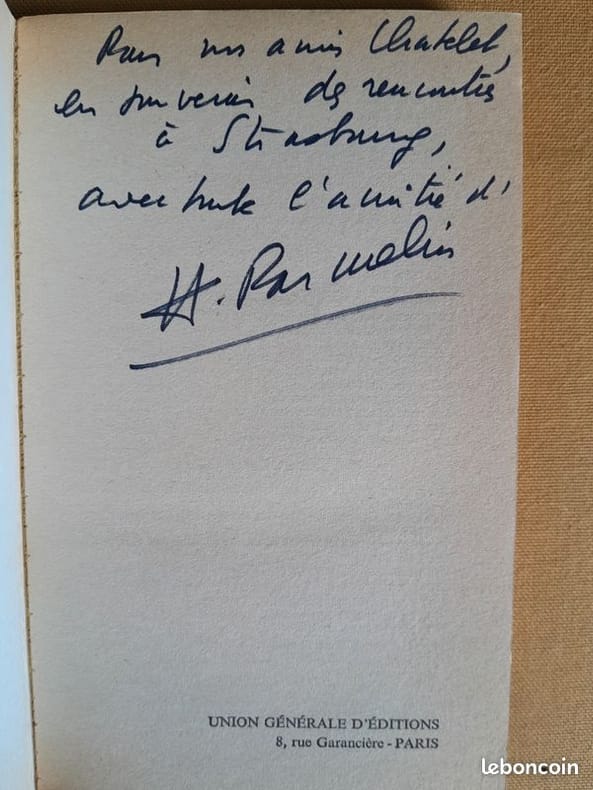 Pour nos amis Chatelet,
en souvenir des rencontres
à Strasbourg,
avec toute l'amitié d'
H. Parmelin
UNION GÉNÉRALE D'ÉDITIONS
8, rue Garancière - PARIS
leboncoin